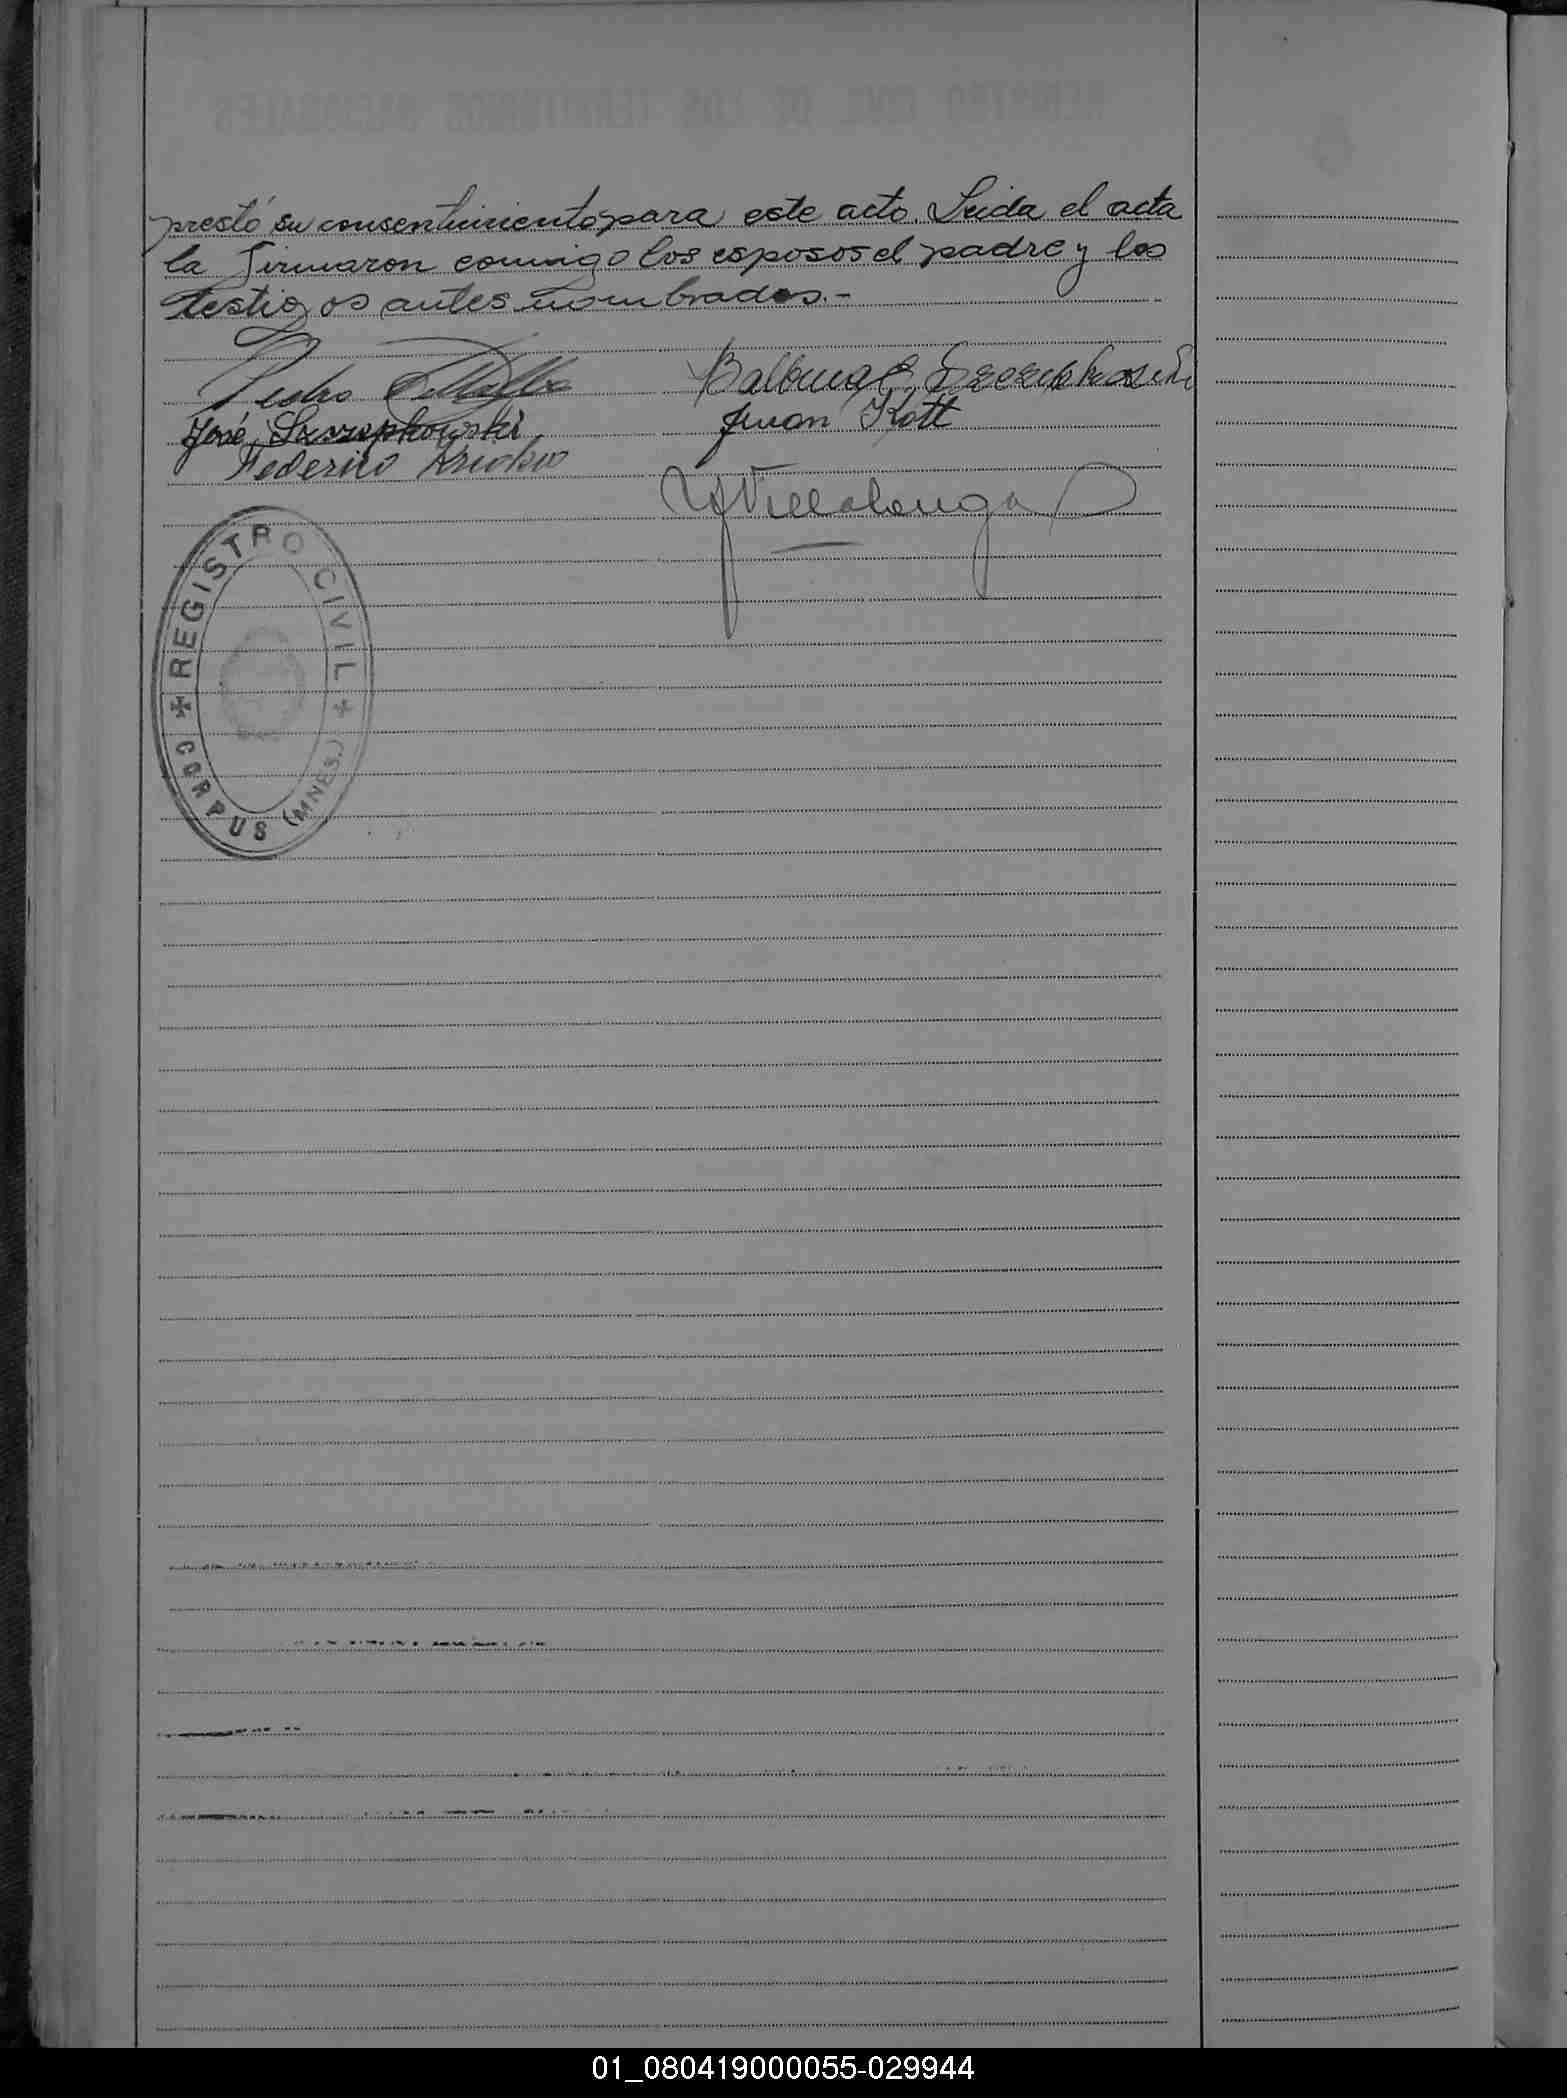 prestó su consentimiento para este acto. Leida el acta
la firmaron conmigo los esposos el padre y los
testigos antes nombrados.-
Pedro
Balbina
José Szczepkowski
Juan Kott
Federico
Villalonga
REGISTRO CIVIL
CORPUS (MNES.)
REGISTRO CIVIL DE LOS TERRITORIOS NACIONALES
01_080419000055-029944